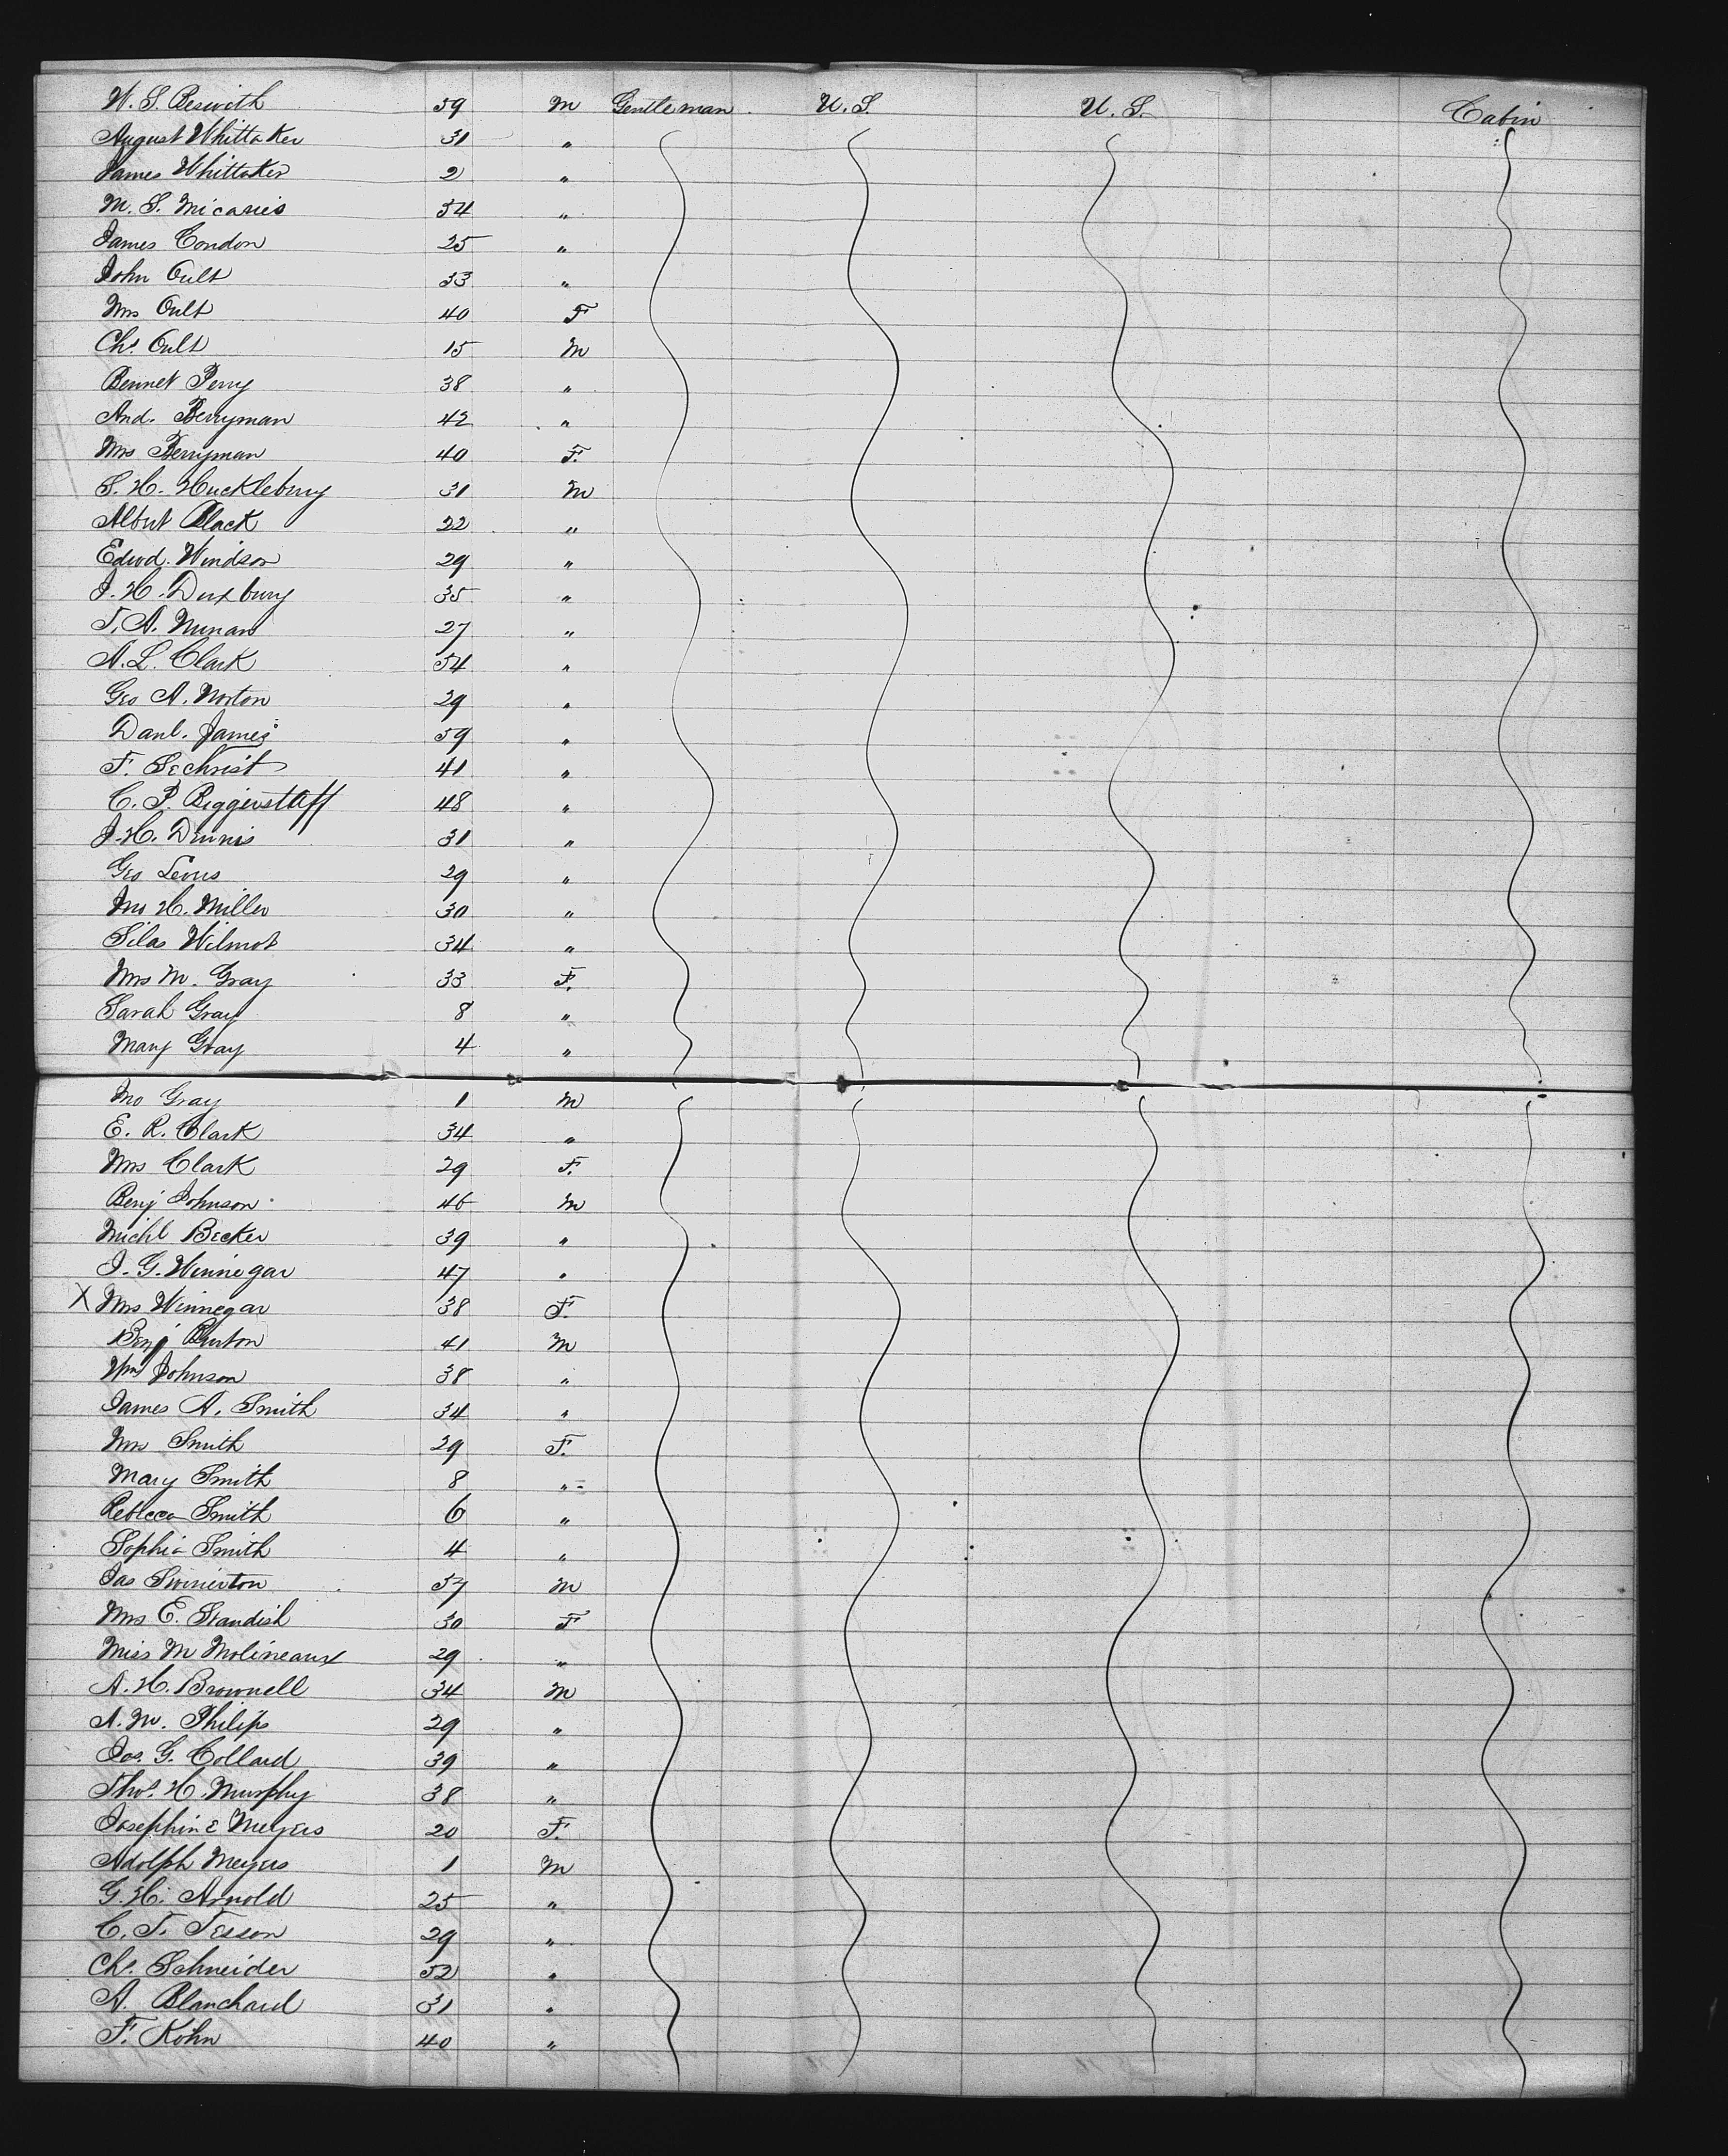 W. S. Beswith 59 M Gentleman. U. S. U. S. Cabin
August Whittaker 31 "
James Whittaker 2 "
M. S. Micaries 54 "
James Condon 25 "
John Oult 53 "
Mrs Oult 40 F
Chs. Oult 15 M
Bennet Perry 38 "
And. Berryman 42 "
Mrs Berryman 40 F.
S. H. Huckleburry 31 M
Albert Black 22 "
Edwd. Windson 29 "
J. H. Duxbury 35 "
T. A. Nunan 27 "
A. L. Clark 54 "
Geo A. Norton 29 "
Danl. James 59 "
F. Sechrist 41 "
C. P. Biggerstaff 48 "
J. H. Dennis 31 "
Geo Lewis 29 "
Jno H. Miller 30 "
Silas Wilmot 34 "
Mrs M. Gray 33 F.
Sarah Gray 8 "
Mary Gray 4 "
Jno Gray 1 M
E. R. Clark 34 "
Mrs Clark 29 F.
Benj Johnson 46 M
Michl Becker 39 "
J. G. Winnegar 47 "
X Mrs Winnegar 38 F.
Benj Burton 41 M
Wm Johnson 38 "
James A. Smith 34 "
Mrs Smith 29 F.
Mary Smith 8 "
Rebecca Smith 6 "
Sophia Smith 4 "
Jas Swinerton 37 M
Mrs E. Standish 30 F
Miss M Molineaux 29 "
A. H. Brownell 34 M
A. M. Philips 29 "
Jos. G. Collard 39 "
Thos. H. Murphy 38 "
Josephine Meyers 20 F.
Adolph Meyers 1 M
G. H. Arnold 25 "
C. T. Tesson 29 "
Chs. Schneider 52 "
A. Blanchard 31 "
F. Kohn 40 "